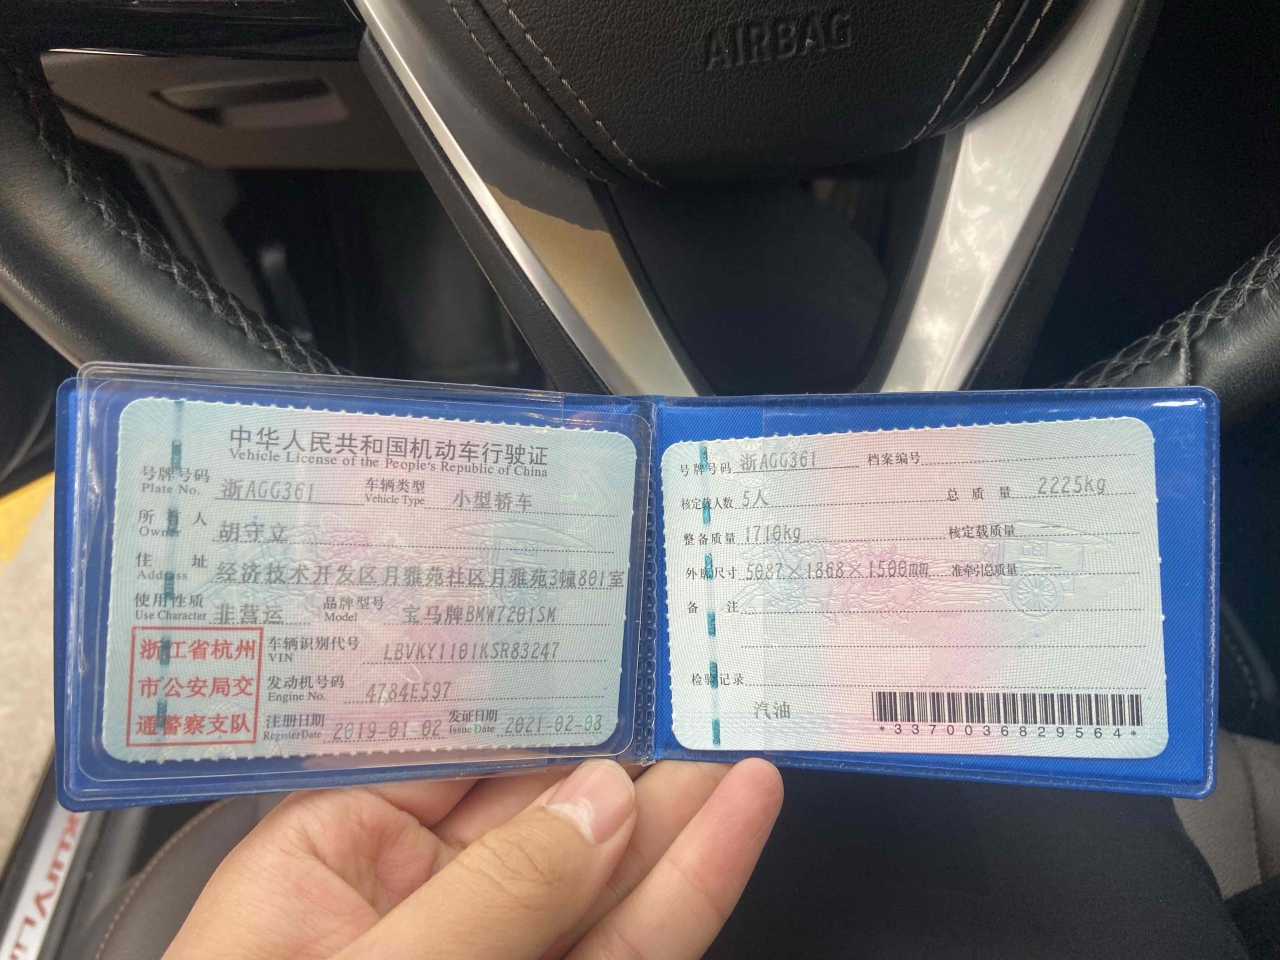 AIRBAG
中华人民共和国机动车行驶证
Vehicle License of the People's Republic of China
号牌号码 浙AGG361 车辆类型 小型轿车
Plate No. Vehicle Type
所有人 胡守立
Owner
住址 经济技术开发区月雅苑社区月雅苑3幢801室
Address
使用性质 非营运 品牌型号 宝马牌BMW7201SM
Use Character Model
浙江省杭州
市公安局交
通警察支队
车辆识别代号 LBVKY1101KSR83247
VIN
发动机号码 4784E597
Engine No.
注册日期 2019-01-02 发证日期 2021-02-03
Register Date Issue Date
号牌号码 浙AGG361 档案编号
核定载人数 5人 总质量 2225kg
整备质量 1710kg 核定载质量 --
外廓尺寸 5087×1868×1500mm 准牵引总质量 --
备注
检验记录
汽油
*3370036829564*